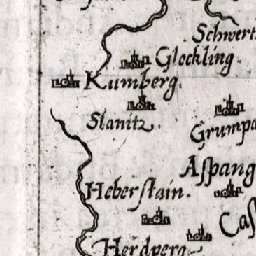 Schwert
Glockling.
Kumberg.
Slanitz
Grumpa
Aſpang
Heberſtain.
Caſ
Herdperg